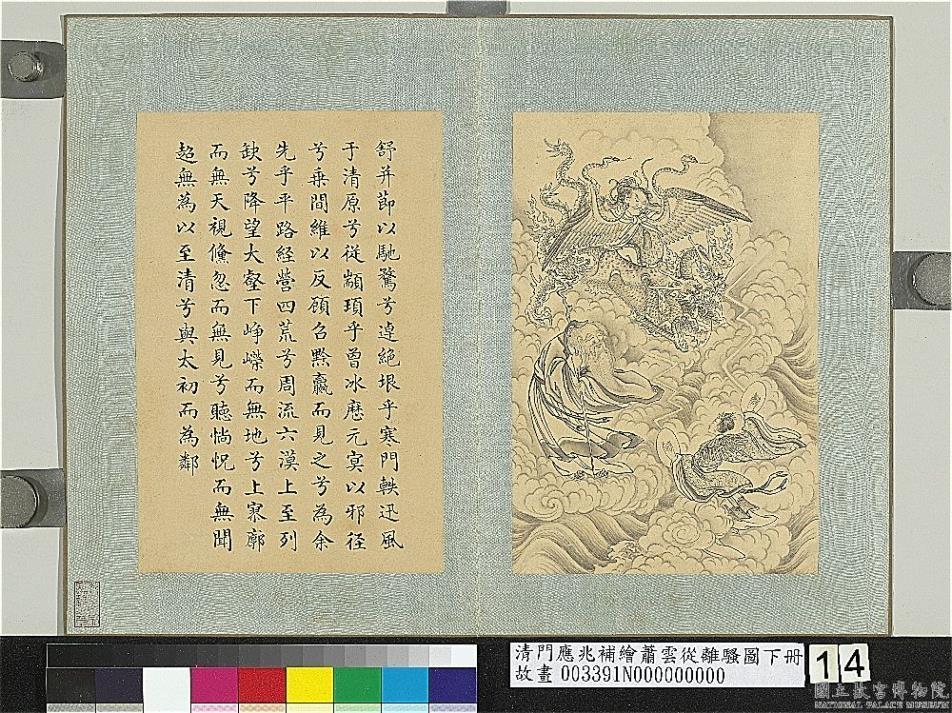 舒并莭以馳騖兮逴絶垠乎寒門軼迅風
于清原兮從顓頊乎曾冰歷元冥以邪徑
兮乗間維以反顧召黔羸而見之兮為余
先乎平路經營四荒兮周流六漠上至列
缺兮降望大壑下崢嶸而無地兮上寥廓
而無天視儵忽而無見兮聽惝怳而無聞
超無為以至清兮與太初而為鄰
清門應兆補繪蕭雲從離騷圖下冊
故畫 003391N000000000
14
國立故宮博物院
NATIONAL PALACE MUSEUM